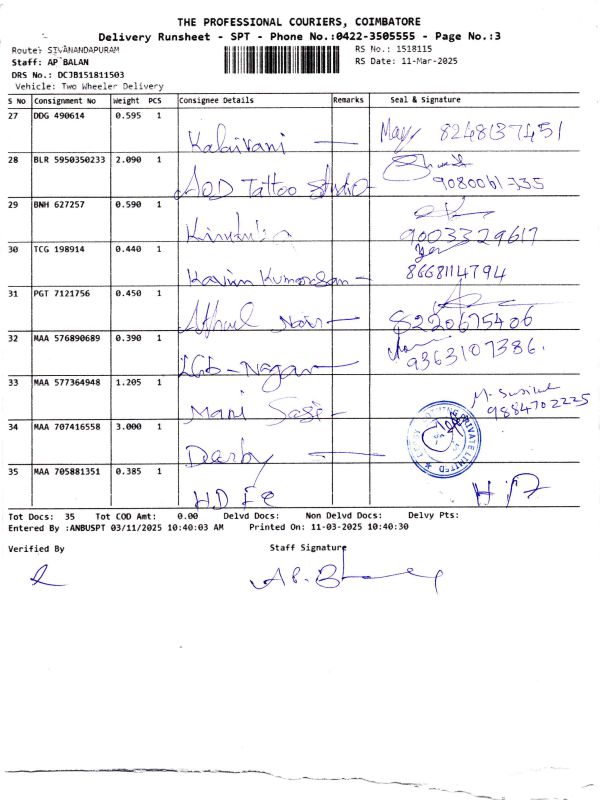 THE PROFESSIONAL COURIERS, COIMBATORE
Delivery Runsheet - SPT - Phone No.:0422-3505555 - Page No.:3
Route: SIVANANDAPURAM RS No.: 1518115
Staff: AP BALAN RS Date: 11-Mar-2025
DRS No.: DCJB151811503
Vehicle: Two Wheeler Delivery
S No Consignment No Weight PCS Consignee Details Remarks Seal & Signature
27 DDG 490614 0.595 1 Kalaivani 8248137451
28 BLR 5950350233 2.090 1 AOD Tattoo Studio 9080061335
29 BNH 627257 0.590 1 9003329617
30 TCG 198914 0.440 1 Kavin Kumaresan 8668114794
31 PGT 7121756 0.450 1 8220675406
32 MAA 576890689 0.390 1 LGB-Nagar 9363107386.
33 MAA 577364948 1.205 1 Mani Sasi 9884702225
34 MAA 707416558 3.000 1 Derby PRIVATE LIMITED
35 MAA 705881351 0.385 1
Tot Docs: 35 Tot COD Amt: 0.00 Delvd Docs: Non Delvd Docs: Delvy Pts:
Entered By :ANBUSPT 03/11/2025 10:40:03 AM Printed On: 11-03-2025 10:40:30
Verified By Staff Signature